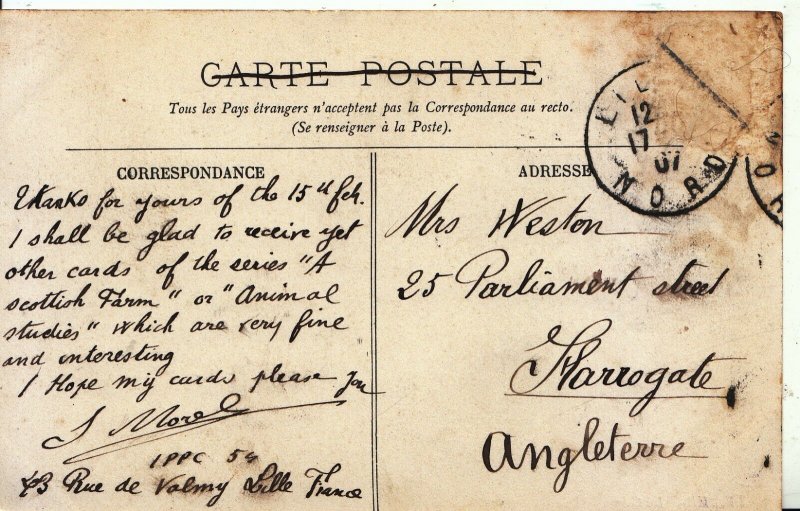 CARTE POSTALE
Tous les Pays étrangers n'acceptent pas la Correspondance au recto.
(Se renseigner à la Poste).
CORRESPONDANCE
Thanks for yours of the 15th feb.
I shall be glad to receive yet
other cards of the series "A
scottish Farm" or "Animal
studies" which are very fine
and interesting
I Hope my cards please you
J Morel
IPPC 54
43 Rue de Valmy Lille France
ADRESSE
Mrs Weston
25 Parliament street
Harrogate
Angleterre
LIL
12
17
07
NORD